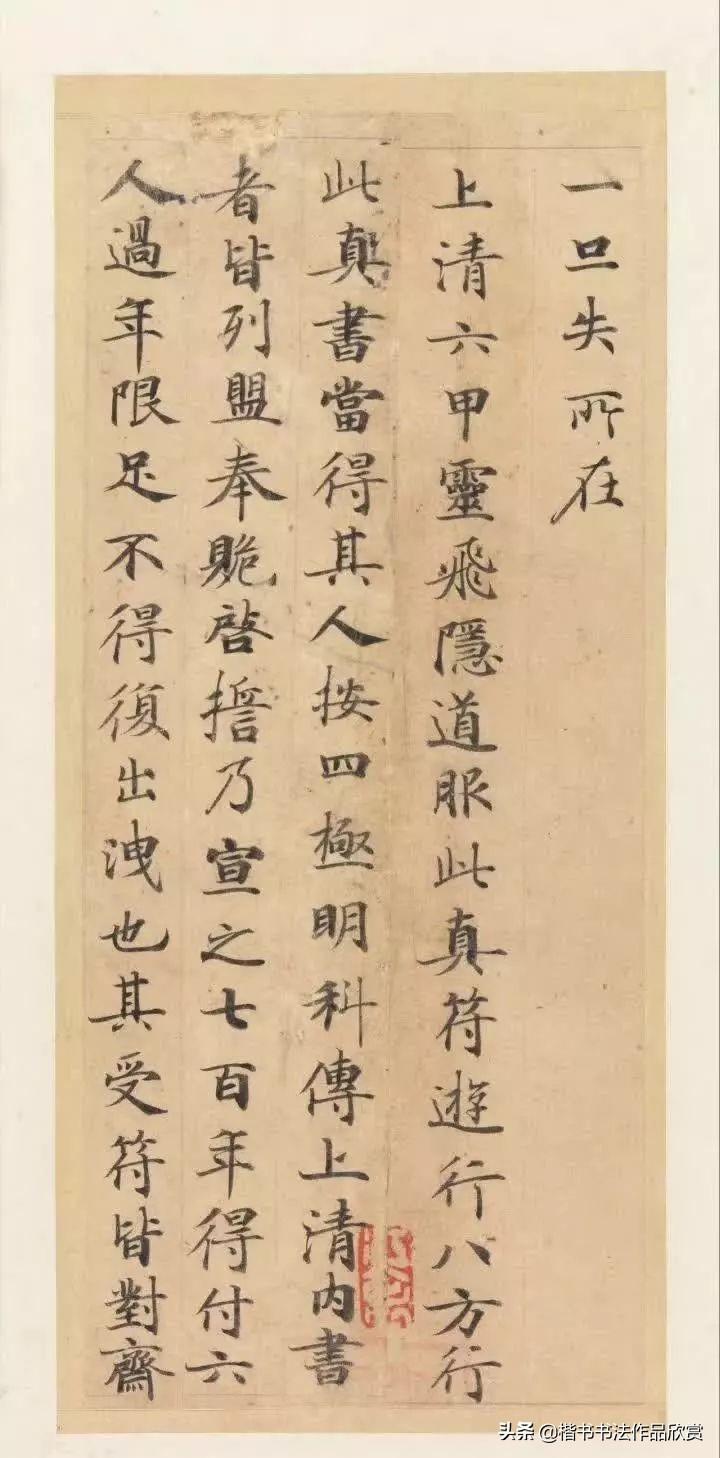 一旦失所在
上清六甲靈飛隱道服此真符遊行八方行
此真書當得其人按四極明科傳上清内書
者皆列盟奉贶啓擔乃宣之七百年得付六
人過年限足不得復出洩也其受符皆對齋
头条 @楷书书法作品欣赏